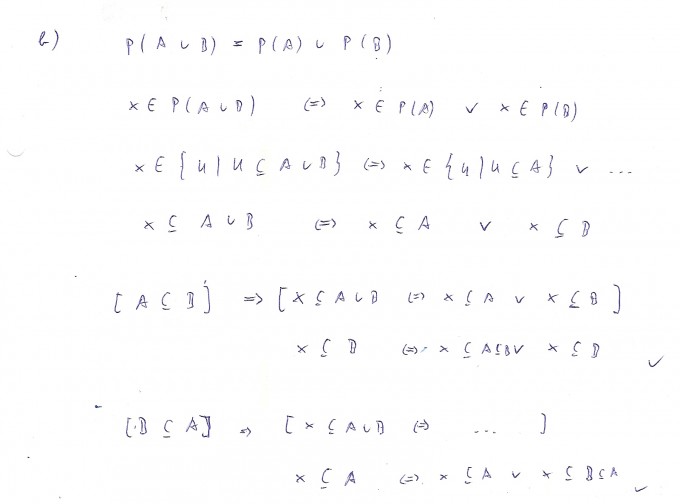 b) P(A ∪ B) = P(A) ∪ P(B)
x ∈ P(A ∪ B) <=> x ∈ P(A) ∨ x ∈ P(B)
x ∈ {U | U ⊆ A ∪ B} <=> x ∈ {U | U ⊆ A} ∨ ...
x ⊆ A ∪ B <=> x ⊆ A ∨ x ⊆ B
[A ⊆ B] => [x ⊆ A ∪ B <=> x ⊆ A ∨ x ⊆ B]
x ⊆ B <=> x ⊆ A ⊆ B ∨ x ⊆ B ✓
[B ⊆ A] => [x ⊆ A ∪ B <=> ... ]
x ⊆ A <=> x ⊆ A ∨ x ⊆ B ⊆ A ✓